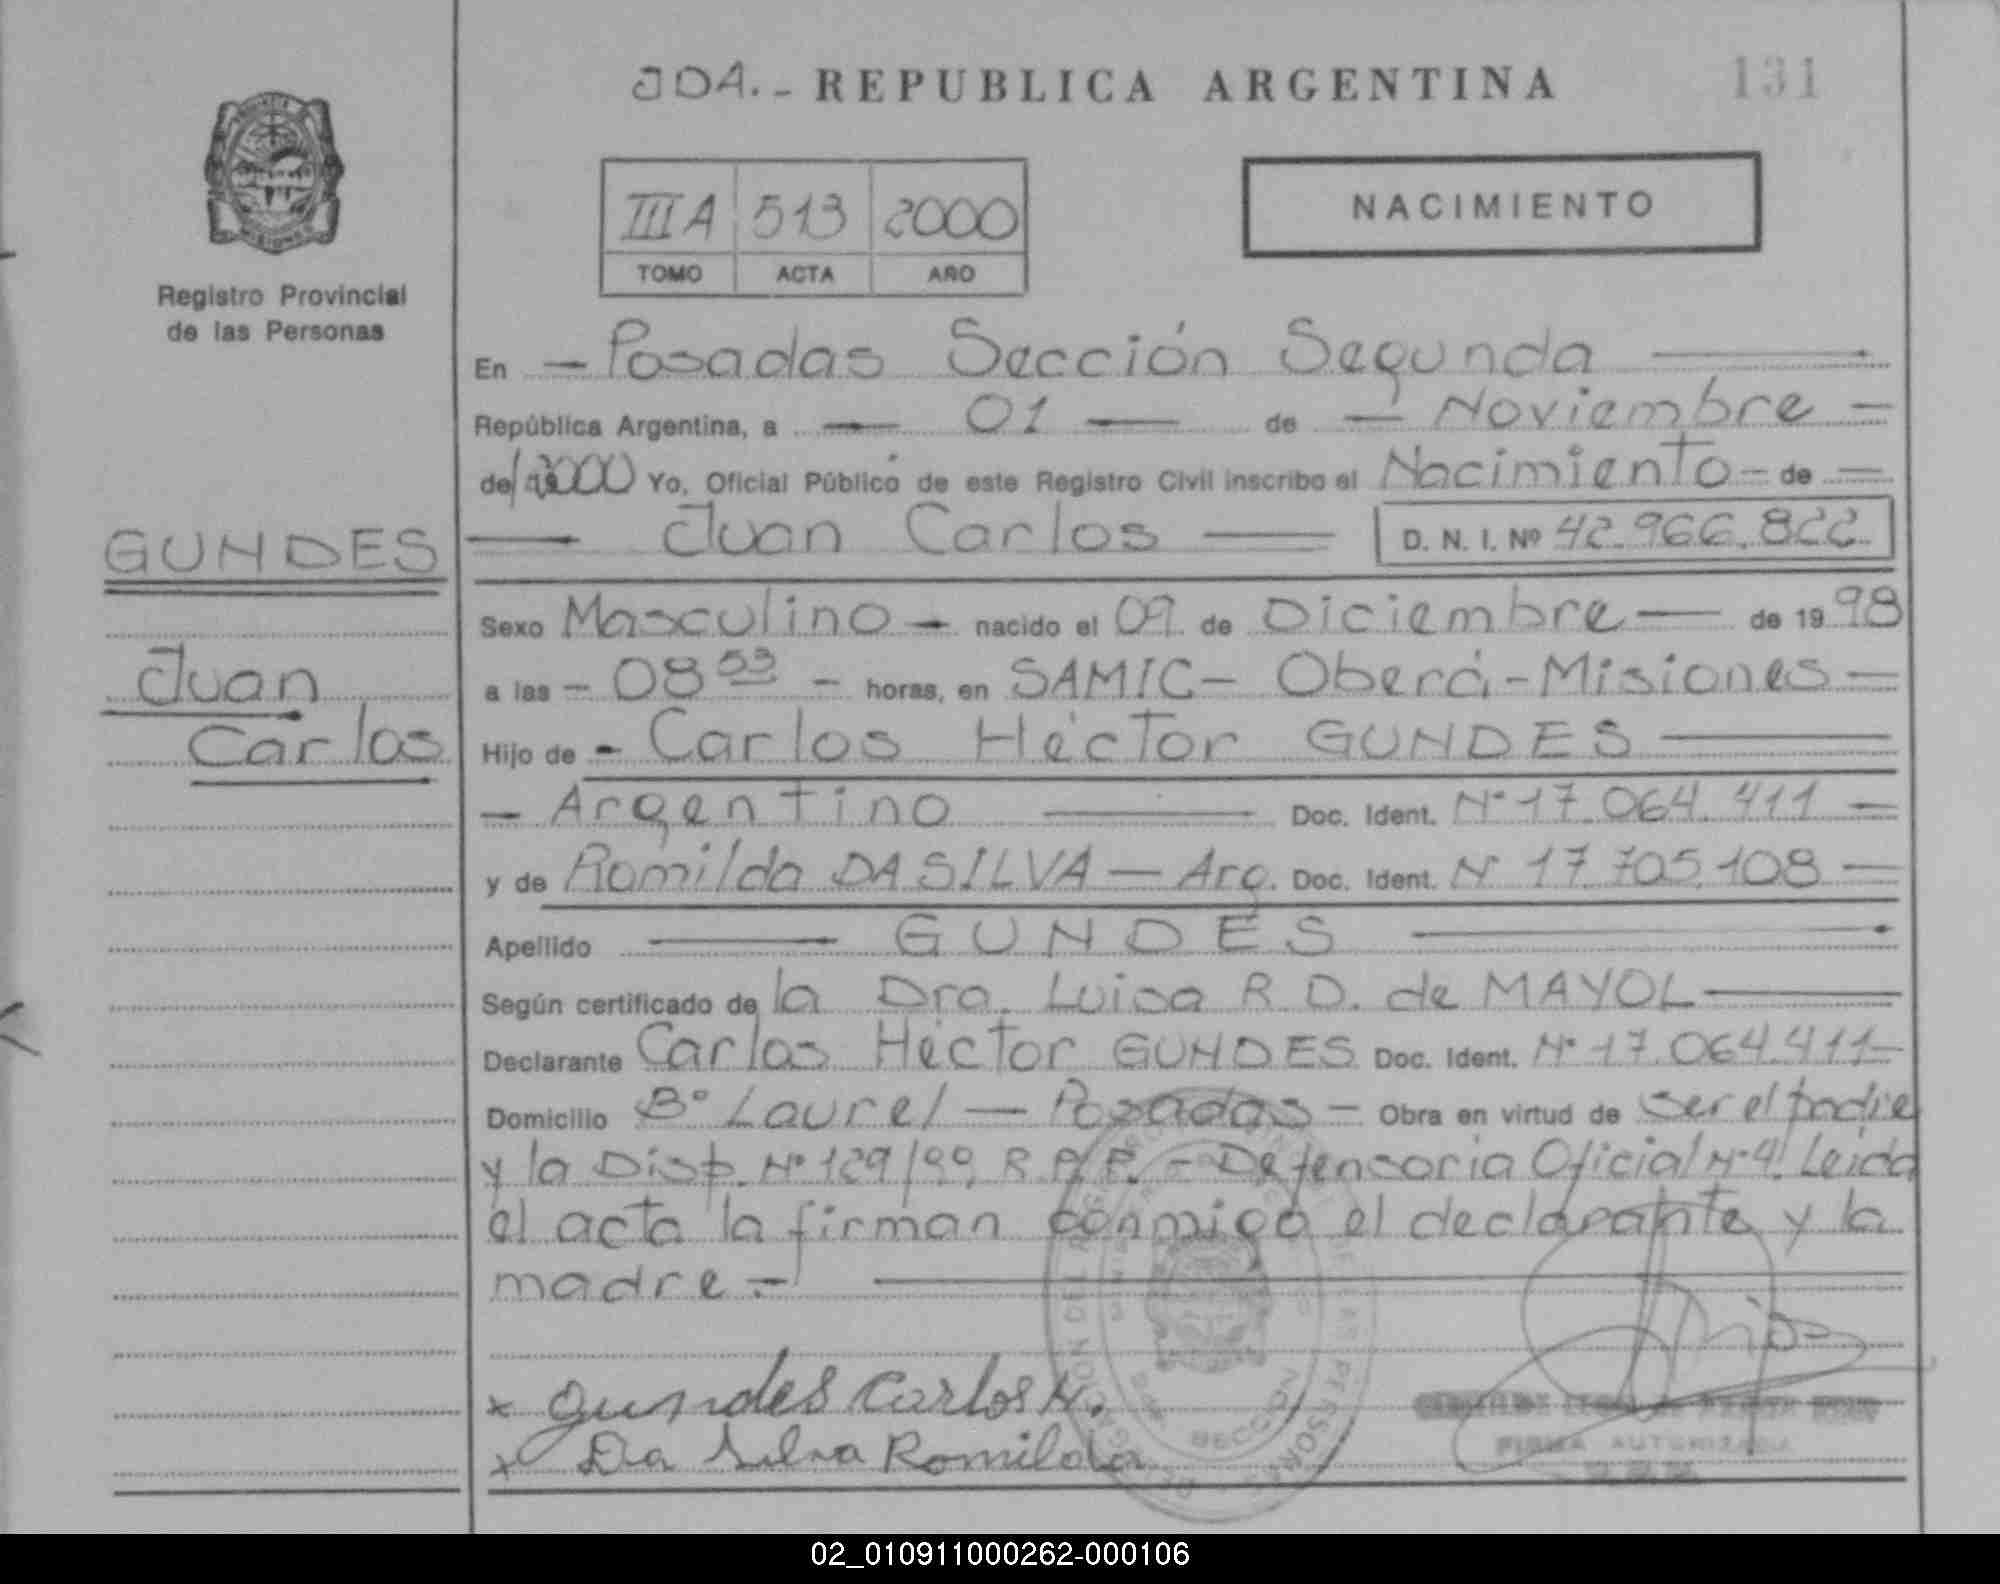 JDA.- REPUBLICA ARGENTINA 131
III A 513 2000
TOMO ACTA AÑO
NACIMIENTO
Registro Provincial
de las Personas
En - Posadas Sección Segunda
República Argentina, a 01 de Noviembre
de/2000 Yo, Oficial Público de este Registro Civil inscribo el Nacimiento - de
GUNDES
Juan Carlos D. N. I. Nº 42.966.822
Sexo Masculino - nacido el 09 de Diciembre de 19 98
Juan
a las - 08 53 - horas, en SAMIC - Oberá - Misiones
Carlos
Hijo de - Carlos Héctor GUNDES
- Argentino Doc. Ident. Nº 17.064.411
y de Romilda DA SILVA - Arg. Doc. Ident. Nº 17.705.108
Apellido GUNDES
Según certificado de la Dra. Luisa R D. de MAYOL
Declarante Carlos Héctor GUNDES Doc. Ident. Nº 17.064.411
Domicilio Bº Laurel - Posadas - Obra en virtud de ser el padre
y la Disp. Nº 129/99 R.P.P. - Defensoria Oficial Nº 4. Leida
el acta la firman conmigo el declarante y la
madre.-
x Gundes Carlos H.
x Da Silva Romilda
FIRMA AUTORIZADA
02_010911000262-000106